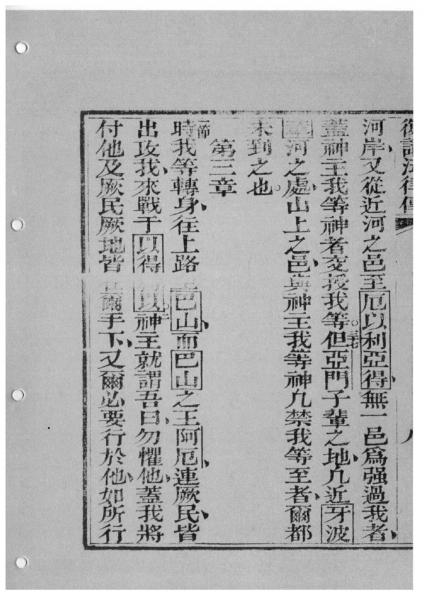 復講法律傳 八
河岸又從近河之邑至厄以利亞得無一邑爲强過我者
蓋神主我等神者交授我等但亞門子輩之地凡近牙波
河之處山上之邑與神主我等神凡禁我等至者爾都
未到之也
第三章
一節時我等轉身往上路巴山而巴山之王阿厄連厥民皆
出攻我來戰于以得以神主就謂吾曰勿懼他蓋我將
付他及厥民厥地皆在爾手下又爾必要行於他如所行